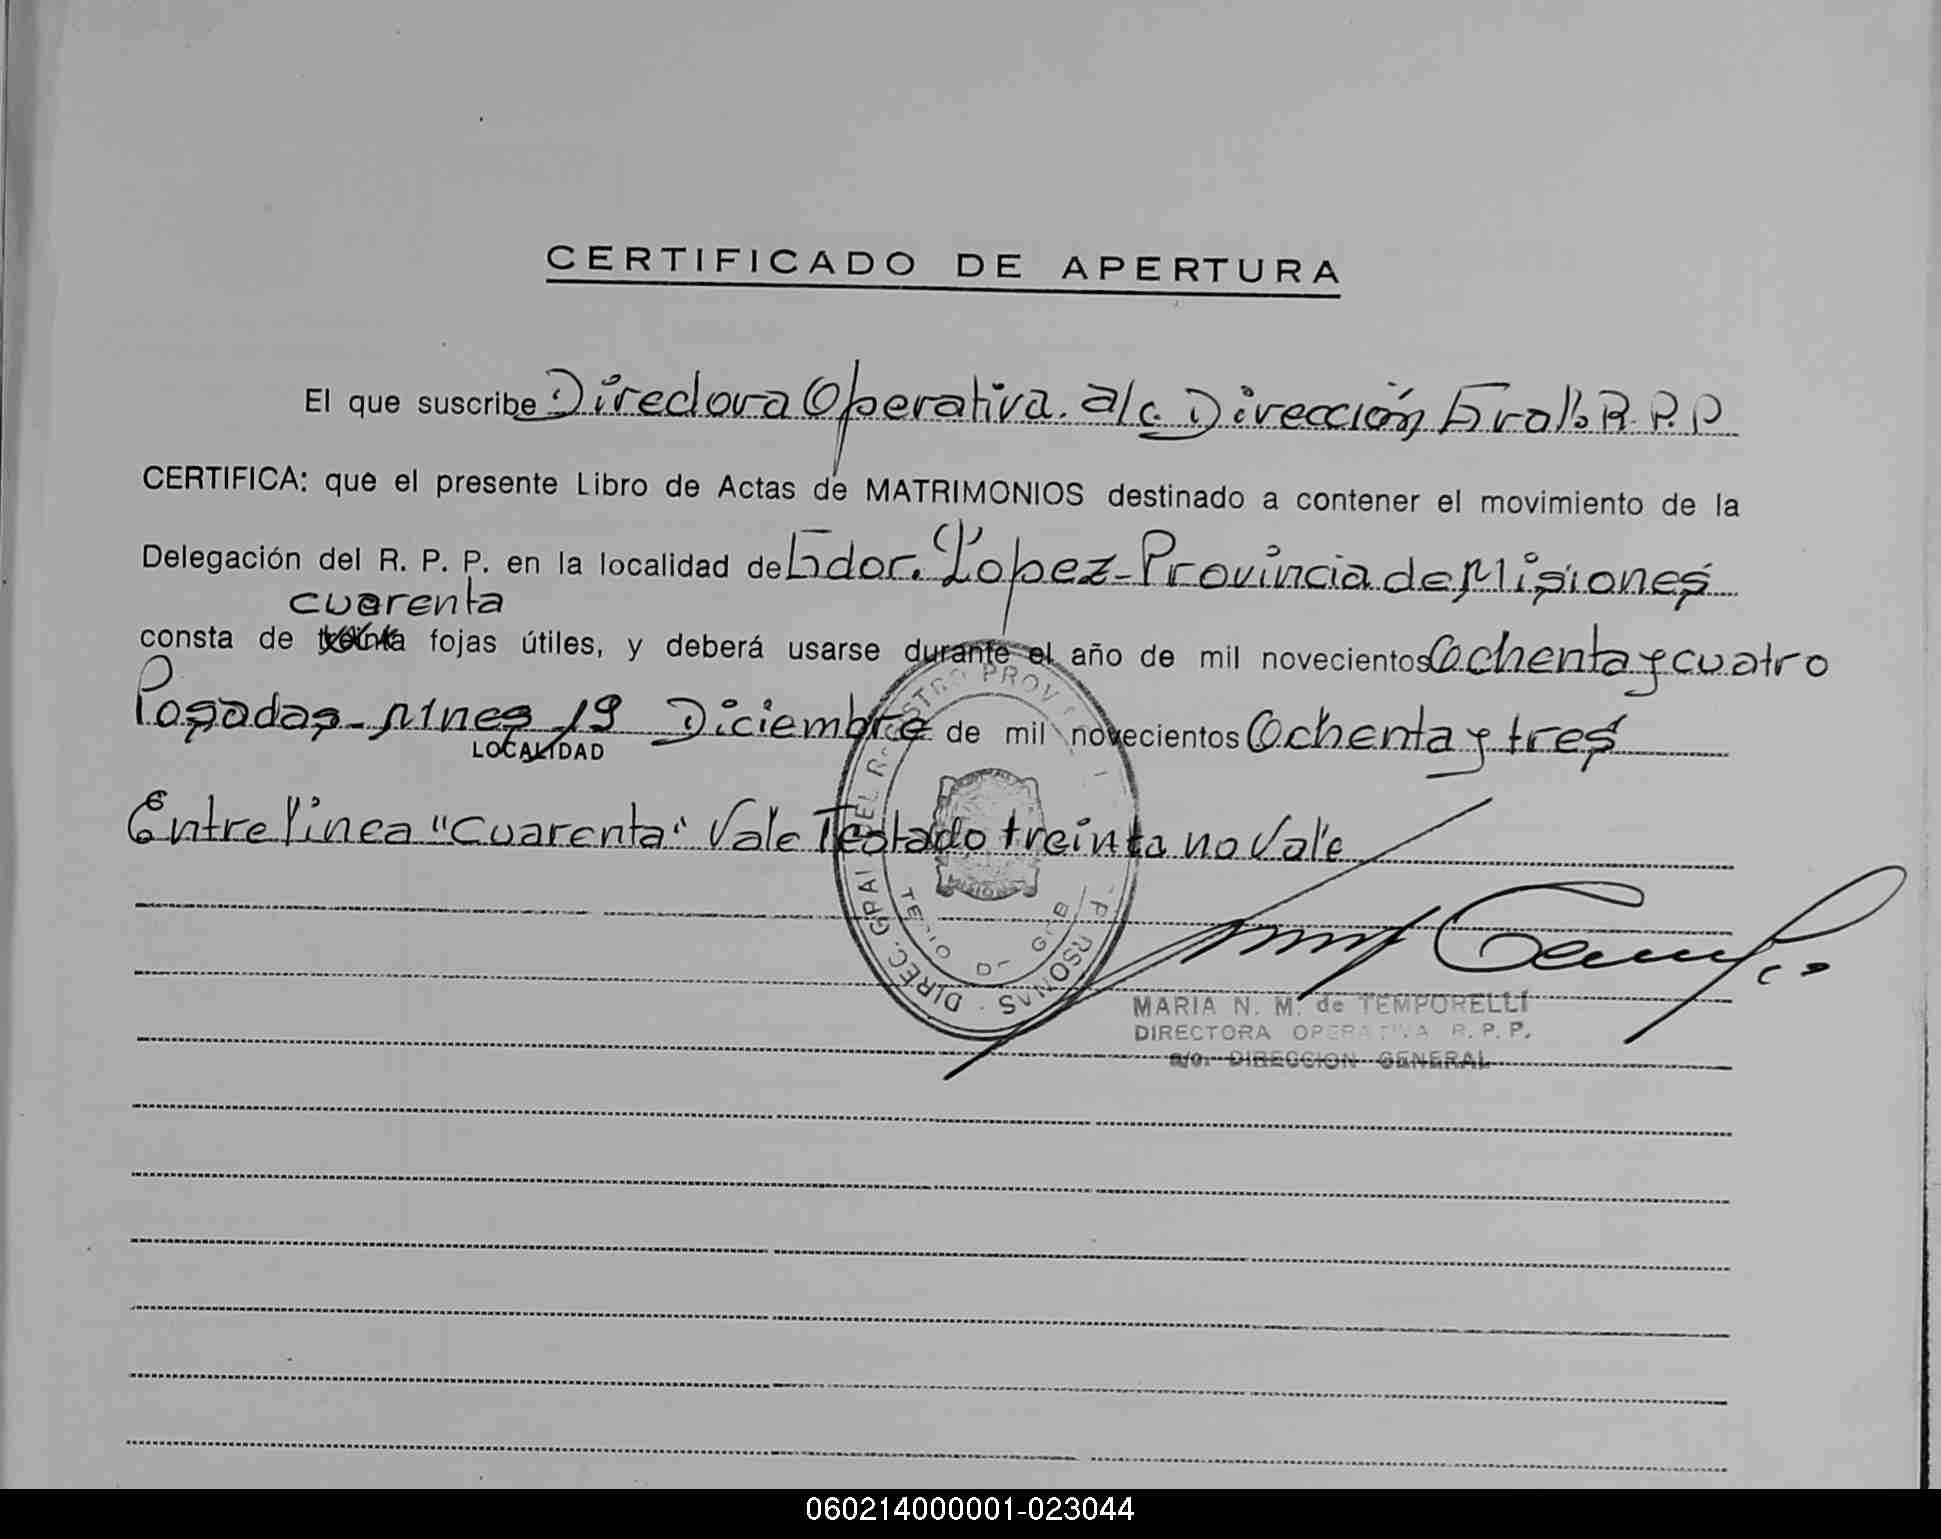 CERTIFICADO DE APERTURA
El que suscribe Directora Operativa. a/c. Dirección Gral. R.P.P
CERTIFICA: que el presente Libro de Actas de MATRIMONIOS destinado a contener el movimiento de la
Delegación del R. P. P. en la localidad de Gdor. López - Provincia de Misiones
cuarenta
consta de treinta fojas útiles, y deberá usarse durante el año de mil novecientos Ochenta y cuatro
Posadas - Mnes 19 Diciembre de mil novecientos Ochenta y tres
LOCALIDAD
Entre línea "Cuarenta" Vale Testado treinta no Vale
DIREC. GRAL DEL REGISTRO PROV
MISIONES
MARIA N. M. de TEMPORELLI
DIRECTORA OPERATIVA R. P. P.
a/c. DIRECCION GENERAL
060214000001-023044